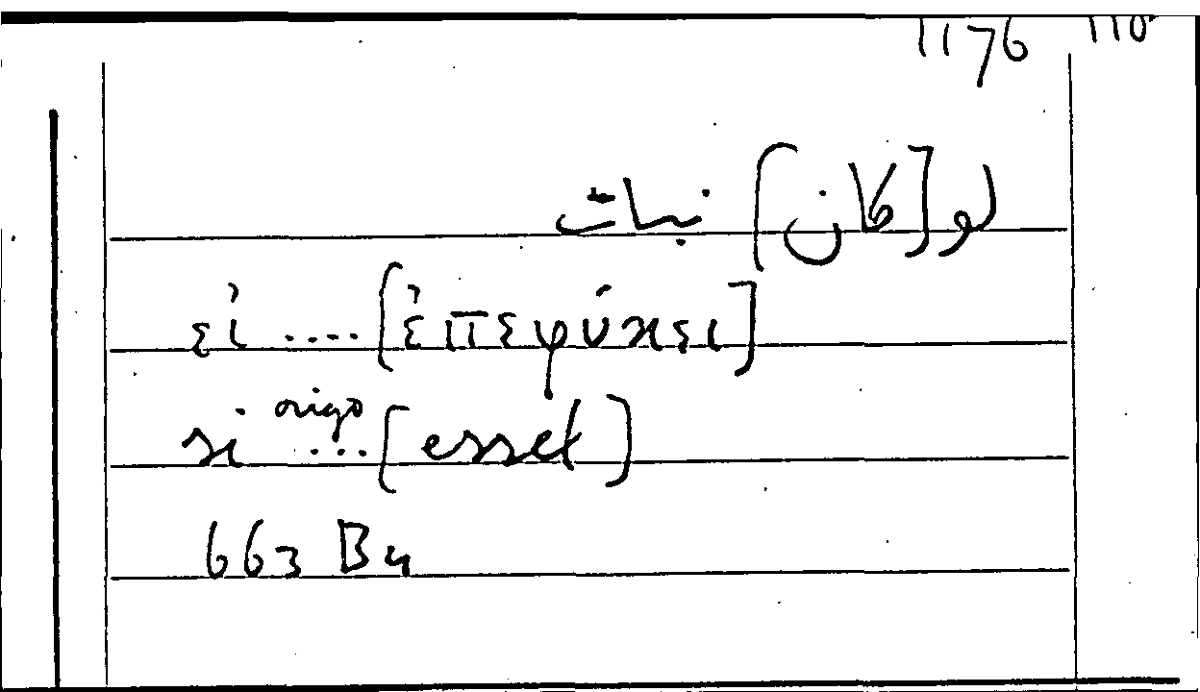 1176 110
لو [كان] نبات
εἰ .... [ἐπεφύκει]
si origo ... [esset]
663 B4